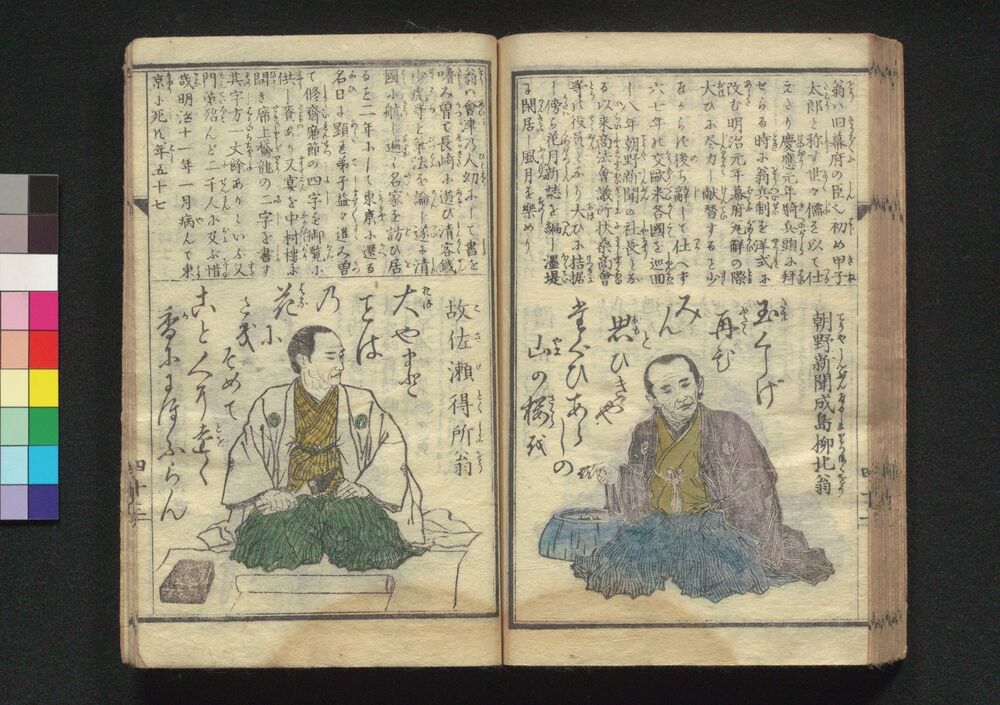 翁ハ旧幕府の臣也初め甲子
太郎と称す世々儒を以て仕
へたり慶應元年騎兵頭小拝
せらる時小翁兵制を洋式小
改む明治元年幕府瓦解の際
大ひ小尽力し献替する所少
なからに後ち辞して仕へす
六七年の交欧米各國を巡回
し八年朝野新聞の社長とな
る以来高法會議所扶桑商會
等の役員となり大ひ小拮据
し傍ら花月新誌を編し墨堤
に閑居し風月を樂めり
朝野新聞成島柳北翁
玉くしげ
再び
みん
と
思ひきや
山の桜を
翁ハ會津の人幼小して書を
嗜み曽て長崎小遊び清客錢
少虎等と筆法を論し遂小清
國小航し遍く名家を訪ひ居
るを二年小して東京小還る
名日に顕れ弟子益々進み曽
て修齋廉節の四字を御覧小
供し賚あり又真を中村樓小
開き席上檐龍の二字を書す
其字方一丈餘ありといふ又
門弟殆んど二千人小及ぶ惜
哉明治十一年一月病んで東
京小死に年五十七
故佐瀬得所翁
大やまと
とは
乃
花小
さき
そめて
こと人も遠く
香にゝほふらん
四十三